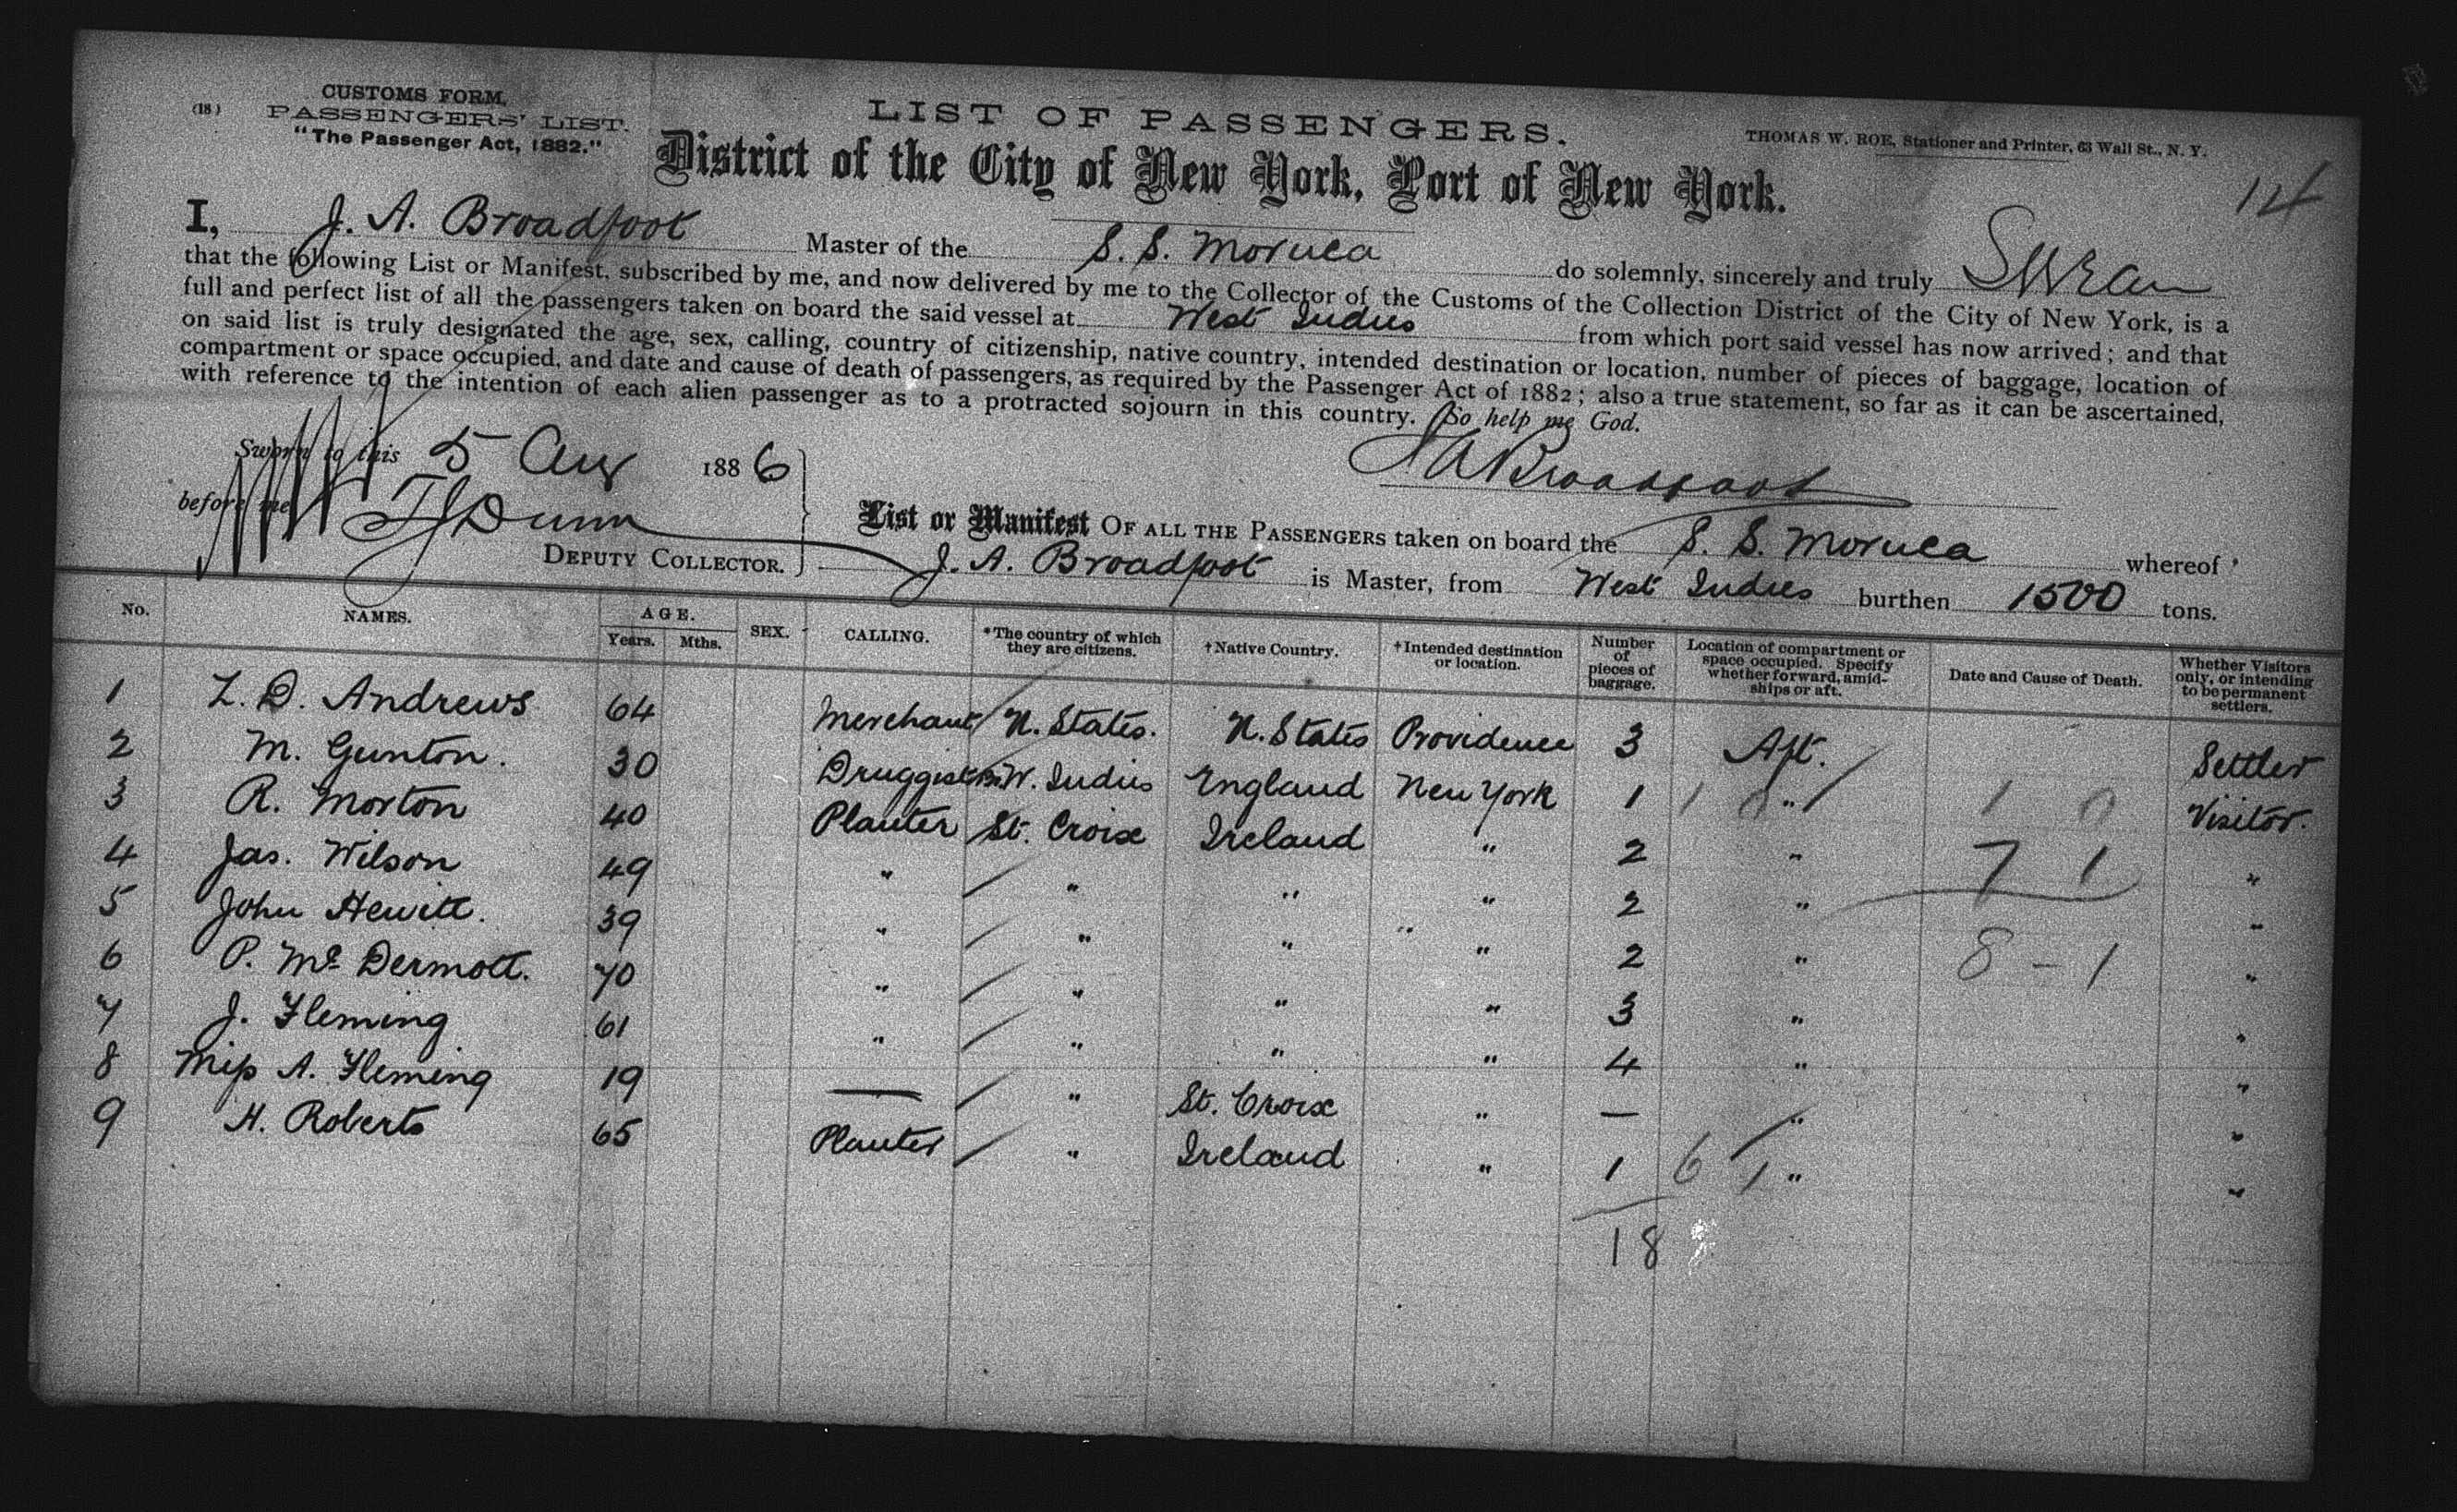 CUSTOMS FORM,
(18) PASSENGERS' LIST.
"The Passenger Act, 1882."
LIST OF PASSENGERS.
THOMAS W. ROE, Stationer and Printer, 63 Wall St., N. Y.
District of the City of New York, Port of New York.
14
I, J. A. Broadfoot Master of the S. S. Moruca do solemnly, sincerely and truly Swear
that the following List or Manifest, subscribed by me, and now delivered by me to the Collector of the Customs of the Collection District of the City of New York, is a
full and perfect list of all the passengers taken on board the said vessel at West Indies from which port said vessel has now arrived; and that
on said list is truly designated the age, sex, calling, country of citizenship, native country, intended destination or location, number of pieces of baggage, location of
compartment or space occupied, and date and cause of death of passengers, as required by the Passenger Act of 1882; also a true statement, so far as it can be ascertained,
with reference to the intention of each alien passenger as to a protracted sojourn in this country. So help me God.
Sworn to this 5 Aug 1886
J A Broadfoot
before me T J Dunn
DEPUTY COLLECTOR.
List or Manifest OF ALL THE PASSENGERS taken on board the S. S. Moruca whereof
J. A. Broadfoot is Master, from West Indies burthen 1500 tons.
No. NAMES. AGE. Years. Mths. SEX. CALLING. *The country of which they are citizens. †Native Country. †Intended destination or location. Number of pieces of baggage. Location of compartment or space occupied. Specify whether forward, amidships or aft. Date and Cause of Death. Whether Visitors only, or intending to be permanent settlers.
1 L. D. Andrews 64 Merchant U. States. U. States Providence 3 Aft. Settler
2 M. Gunton. 30 Druggist Br. W. Indies England New York 1 1 0 " 1 0 Visitor.
3 R. Morton 40 Planter St. Croix Ireland " 2 " 7 1 "
4 Jas. Wilson 49 " " " " 2 " "
5 John Hewitt. 39 " " " " 2 " 8 - 1 "
6 P. Mc Dermott. 70 " " " " 3 " "
7 J. Fleming 61 " " " " 4 " "
8 Miss A. Fleming 19 — " St. Croix " — " "
9 H. Roberts 65 Planter " Ireland " 1 6 1 " "
18